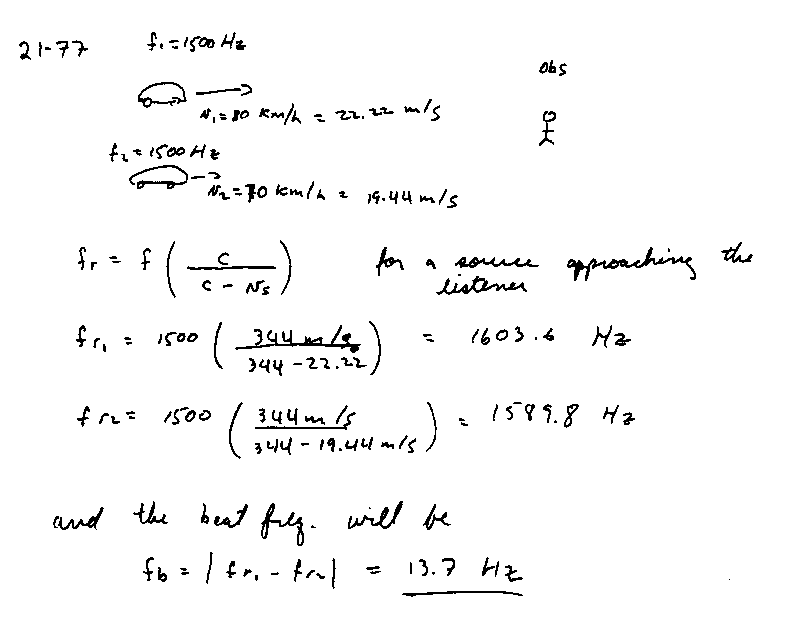 21-77 f₁ = 1500 Hz
obs
v₁ = 80 km/h = 22.22 m/s
f₂ = 1500 Hz
v₂ = 70 km/h = 19.44 m/s
fr = f ( c / (c - vs) ) for a source approaching the
listener
fr₁ = 1500 ( 344 m/s / (344 - 22.22) ) = 1603.6 Hz
fr₂ = 1500 ( 344 m/s / (344 - 19.44 m/s) ) = 1589.8 Hz
and the beat freq. will be
fb = | fr₁ - fr₂ | = 13.7 Hz